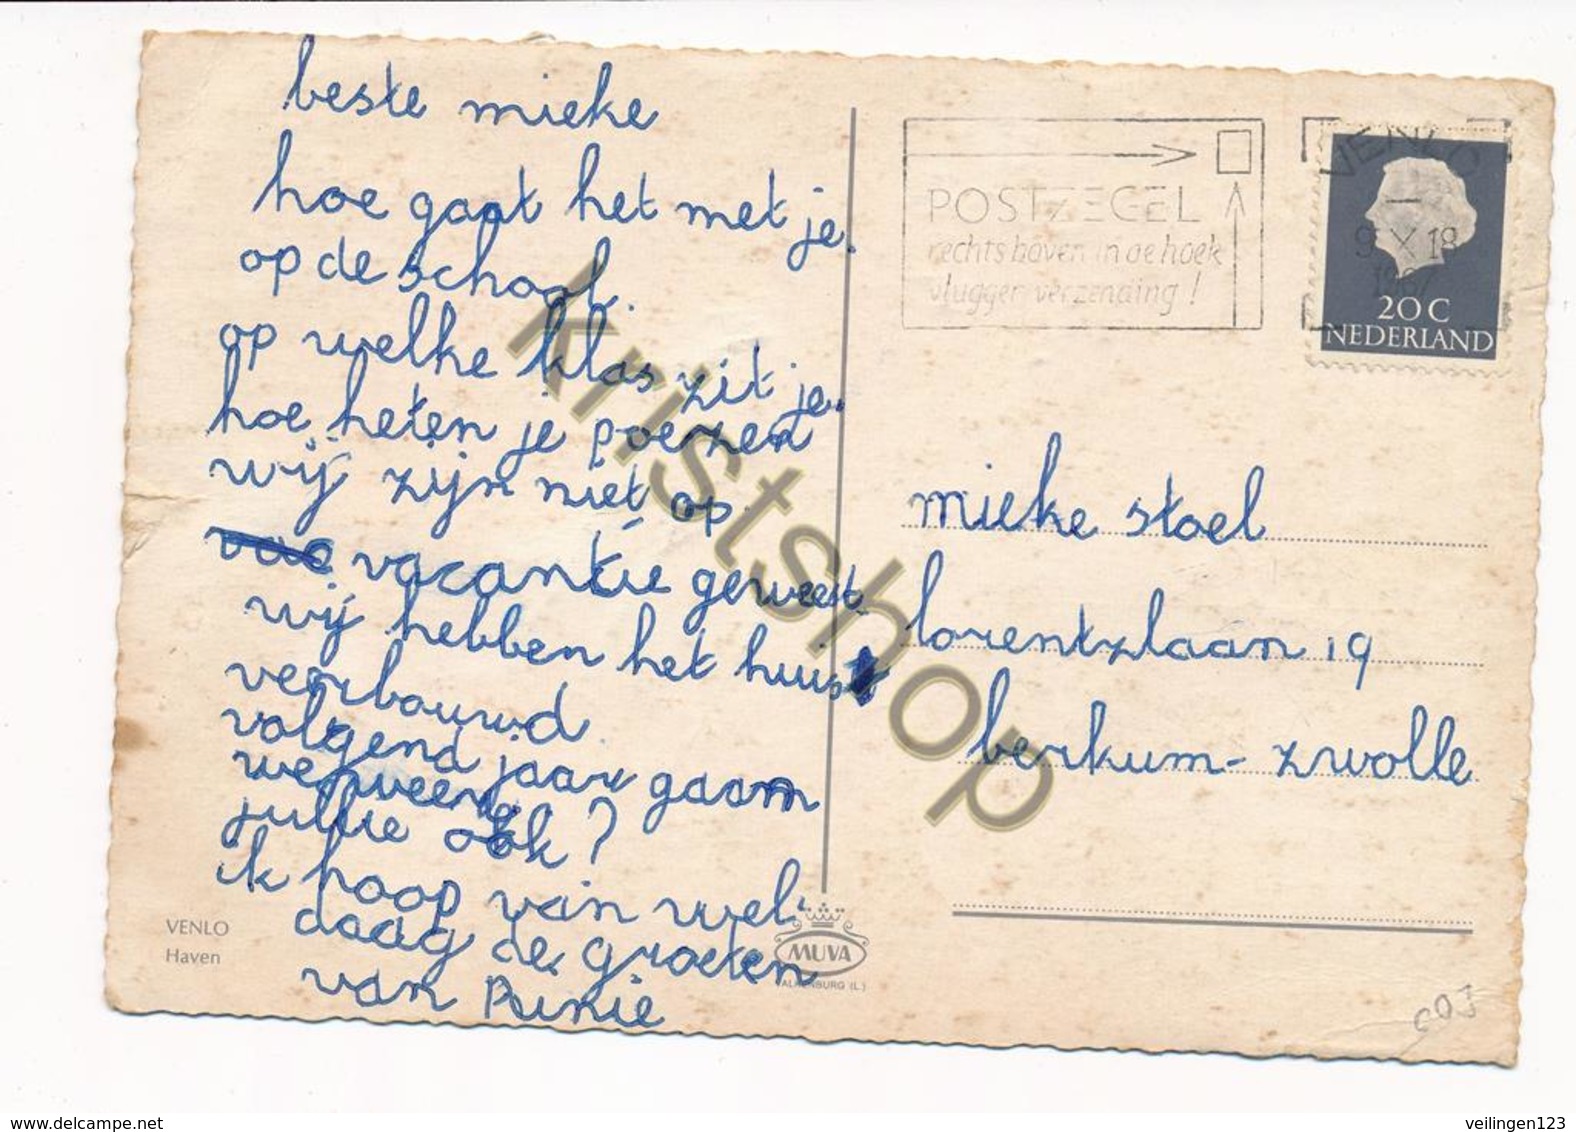 beste mieke
hoe gaat het met je.
op de school.
op welke klas zit je.
hoe heten je poezen
wij zijn niet op
vac vacantie geweest
wij hebben het huis
verbouwd
volgend jaar gaan
we weer
jullie ook?
ik hoop van wel.
daag de groeten
van Rinie
VENLO
Haven
MUVA
VALKENBURG (L.)
POSTZEGEL
rechts boven in de hoek
vlugger verzending!
VENLO
9 X 18
1967
20 C
NEDERLAND
mieke stoel
lorentzlaan 19
berkum - zwolle
kristshop
veilingen123